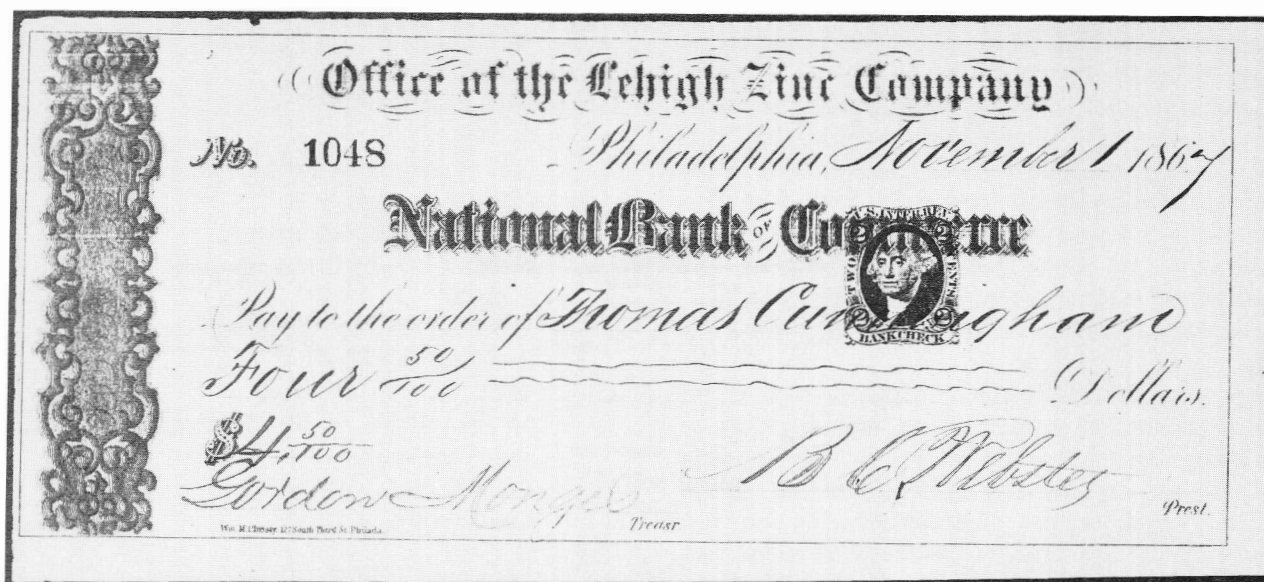 Office of the Lehigh Zinc Company
No. 1048 Philadelphia, November 1 1867
National Bank OF Commerce
U.S. INTER. REV.
2 2
TWO CENTS
2 2
BANK CHECK
Pay to the order of Thomas Cunningham
Four 50/100 Dollars.
$4, 50/100
Gordon B C Webster
Treasr Prest.
South Third St. Philada.